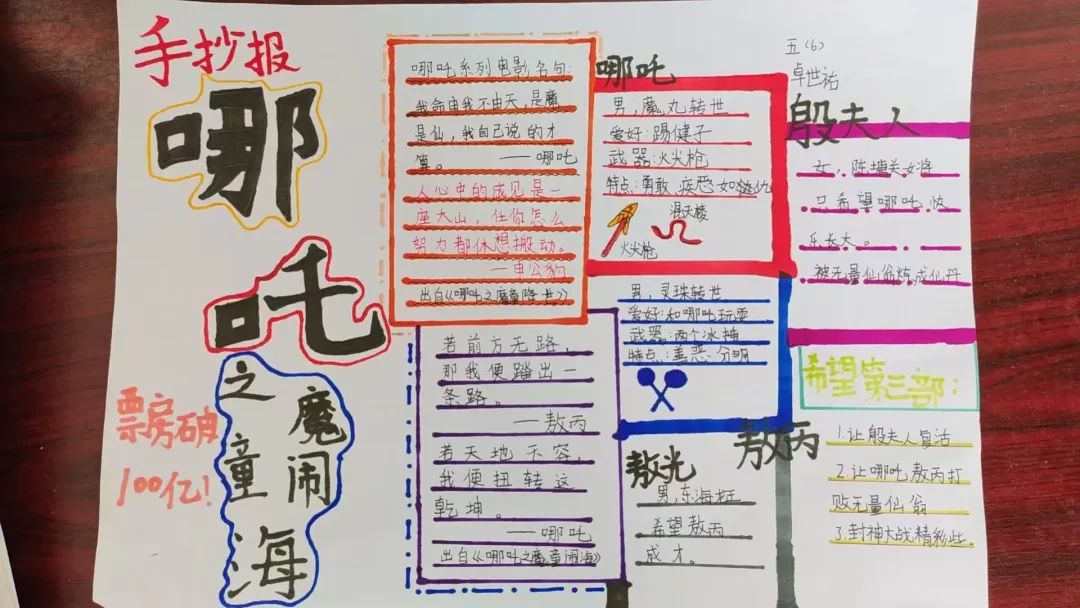 手抄报
哪
吒
之
魔
童
闹
海
票房破
100亿!
哪吒系列电影名句:
我命由我不由天,是魔
是仙,我自己说的才
算。
——哪吒
人心中的成见是一
座大山,任你怎么
努力都休想搬动。
——申公豹
出自《哪吒之魔童降世》
若前方无路,
那我便踏出一
条路。
——敖丙
若天地不容,
我便扭转这
乾坤。
——哪吒
出自《哪吒之魔童闹海》
哪吒
男,魔丸转世
爱好:踢健子
武器:火尖枪
特点:勇敢、疾恶如仇
混天绫
火尖枪
男,灵珠转世
爱好:和哪吒玩耍
武器:两个冰锤
特点:善恶分明
敖丙
敖光
男,东海龙王
希望敖丙
成才。
五(6)
卓世祐
殷夫人
女,陈塘关女将
只希望哪吒快
乐长大。
被无量仙翁炼成仙丹
希望第三部:
1.让殷夫人复活
2.让哪吒敖丙打
败无量仙翁
3.封神大战精彩些。